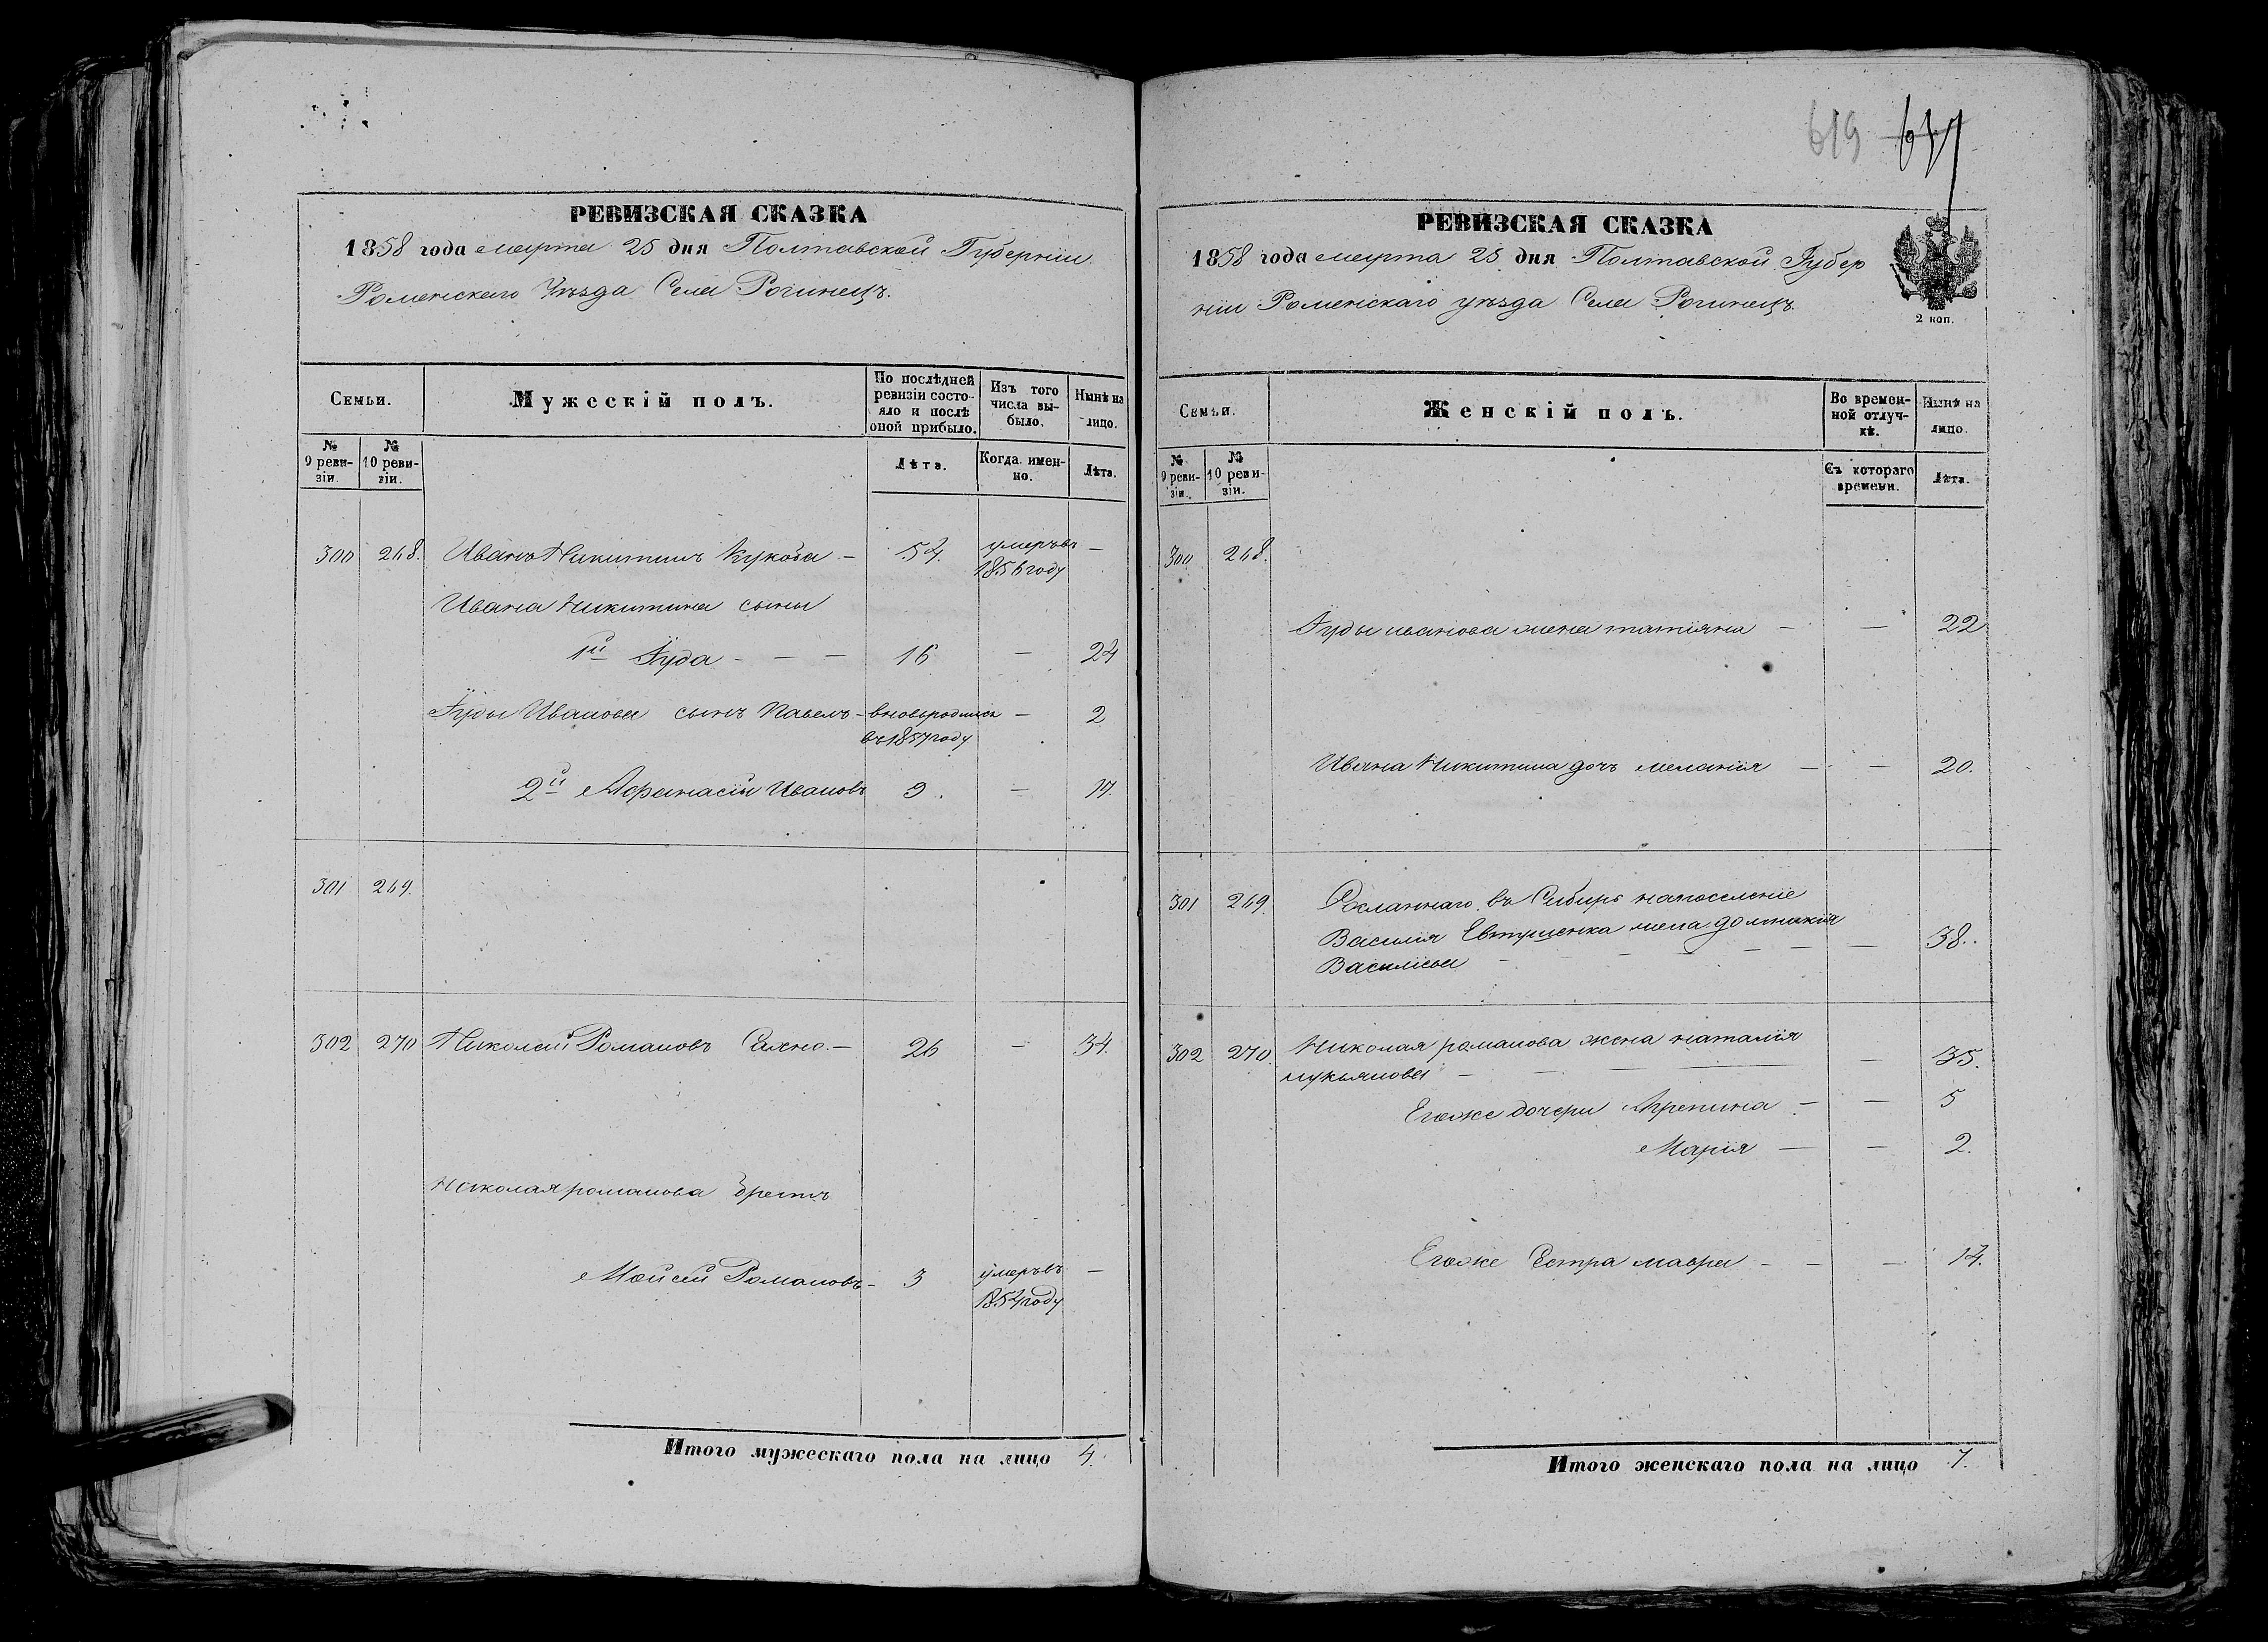 РЕВИЗСКАЯ СКАЗКА
1858 года марта 25 дня Полтавской Губерніи
Роменскаго Уѣзда Села Рогинецъ.
Семьи.
Мужескій полъ.
По послѣдней ревизіи состояло и послѣ оной прибыло.
Изъ того числа выбыло.
Нынѣ на лицо.
№ 9 ревизіи.
№ 10 ревизіи.
Лѣта.
Когда именно.
Лѣта.
300 268. Иванъ Никитинъ Кукоба — 54. умеръ въ 1856 году —
Ивана Никитина сыны
1й Іуда — — — 16 — 24
Іуды Иванова сынъ Павелъ — вновьродился въ 1857 году — 2
2й Афанасій Ивановъ 9. — 17.
301 269.
302 270 Николай Романовъ Сахно — 26 — 34.
Николая романова братъ
Мойсей Романовъ — 3 умеръ въ 1854 году —
Итого мужескаго пола на лицо 4.
619 637
РЕВИЗСКАЯ СКАЗКА
1858 года марта 25 дня Полтавской Губер
ніи Роменскаго уѣзда Села Рогинецъ.
2 коп.
Семьи.
Женскій полъ.
Во временной отлучкѣ.
Нынѣ на лицо.
№ 9 ревизіи.
№ 10 ревизіи.
Съ котораго времени.
Лѣта.
300 268.
Іуды иванова жена татіяна — — 22
Ивана Никитина дочь меланія — — 20.
301 269. Сосланнаго въ Сибирь напоселеніе
Василія Евтушенка жена домникія
Васильева — — — — — 38.
302 270. Николая романова жена наталія
лукьянова — — — — 35.
Егоже дочери Агрепина — — 5
Марія — — 2.
Егоже Сестра мавра — — — 14.
Итого женскаго пола на лицо 7.